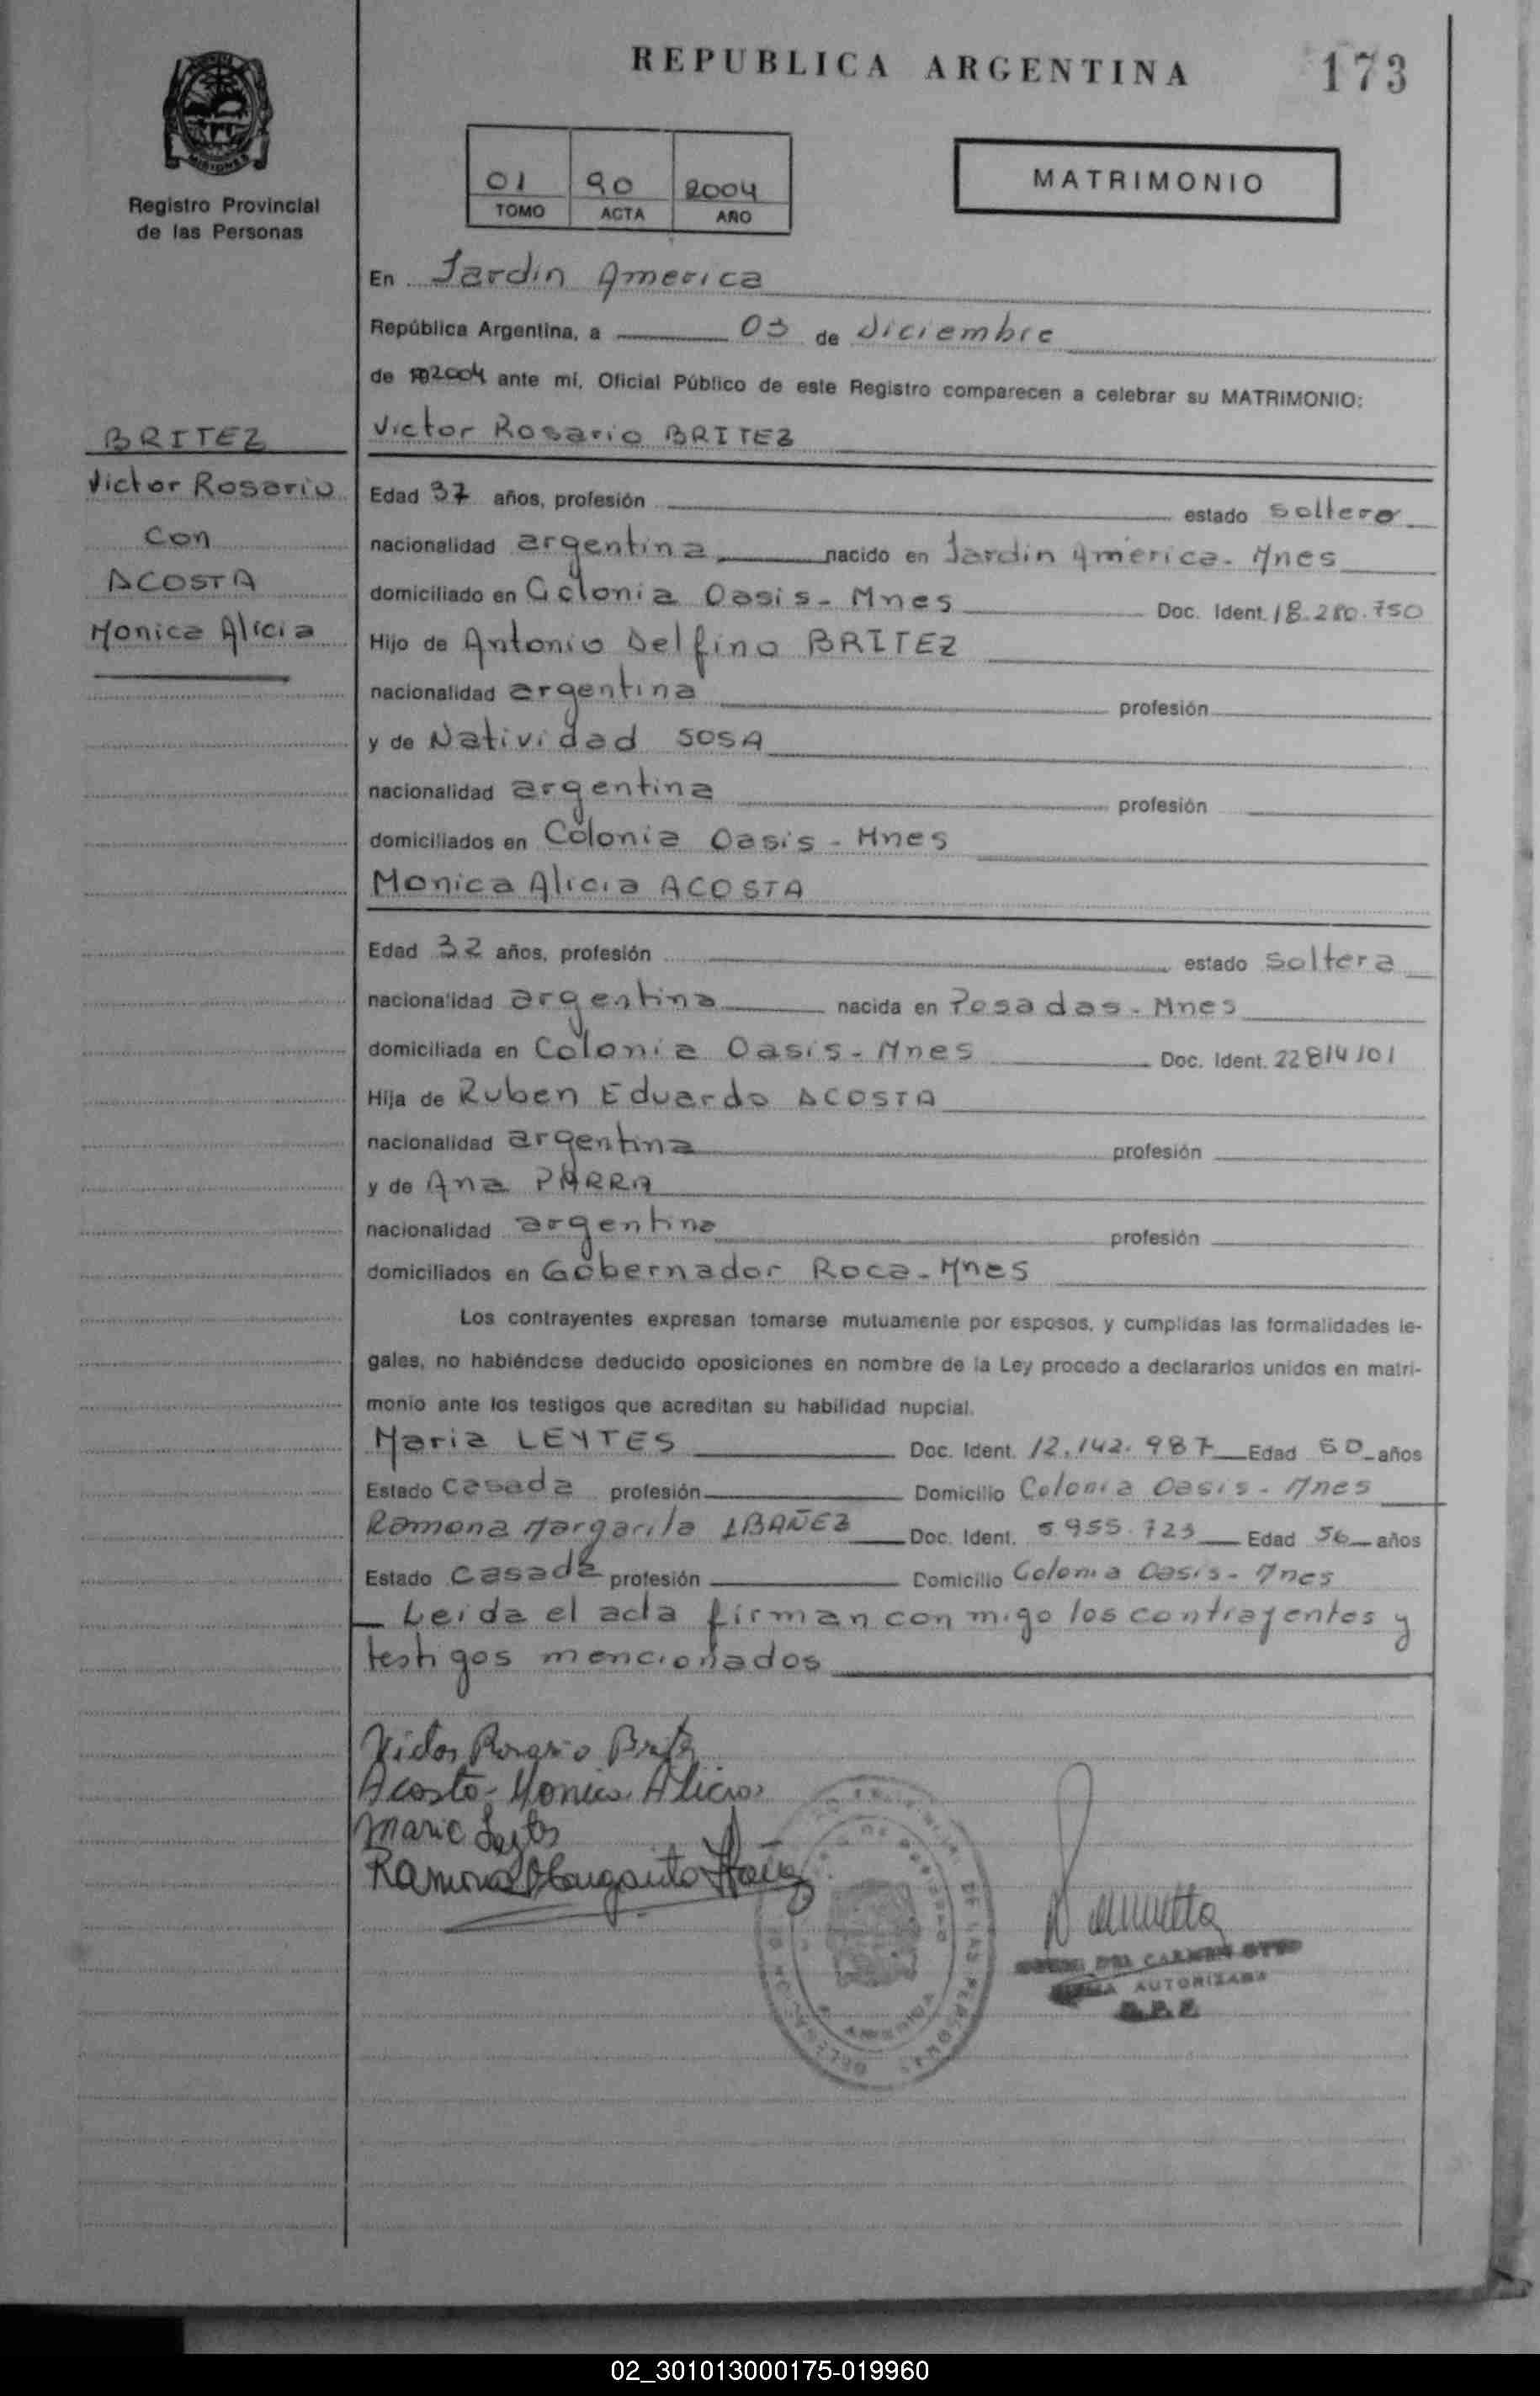 REPUBLICA ARGENTINA
173
MISIONES
Registro Provincial
de las Personas
01 90 2004
TOMO ACTA AÑO
MATRIMONIO
En Jardin America
República Argentina, a 03 de diciembre
de 2004 ante mí, Oficial Público de este Registro comparecen a celebrar su MATRIMONIO:
BRITEZ
Victor Rosario
Con
ACOSTA
Monica Alicia
Victor Rosario BRITEZ
Edad 37 años, profesión estado soltero
nacionalidad argentina nacido en Jardin America - Mnes
domiciliado en Colonia Oasis - Mnes Doc. Ident. 18.280.750
Hijo de Antonio Delfino BRITEZ
nacionalidad argentina profesión
y de Natividad SOSA
nacionalidad argentina profesión
domiciliados en Colonia Oasis - Mnes
Monica Alicia ACOSTA
Edad 32 años, profesión estado soltera
nacionalidad argentina nacida en Posadas - Mnes
domiciliada en Colonia Oasis - Mnes Doc. Ident. 22814101
Hija de Ruben Eduardo ACOSTA
nacionalidad argentina profesión
y de Ana PARRA
nacionalidad argentina profesión
domiciliados en Gobernador Roca - Mnes
Los contrayentes expresan tomarse mutuamente por esposos, y cumplidas las formalidades le-
gales, no habiéndose deducido oposiciones en nombre de la Ley procedo a declararlos unidos en matri-
monio ante los testigos que acreditan su habilidad nupcial.
Maria LEYTES Doc. Ident. 12.142.987 Edad 60 años
Estado Casada profesión Domicilio Colonia Oasis - Mnes
Ramona Margarita IBAÑEZ Doc. Ident. 5955.723 Edad 56 años
Estado Casada profesión Domicilio Colonia Oasis - Mnes
Leida el acta firman con migo los contrayentes y
testigos mencionados
Victor Rosario Britez
Acosta Monica Alicia
Maria Leytes
Ramona Margarita Ibañez
DE LAS PERSONAS
AMERICA
DEL CARMEN
AUTORIZADA
02_301013000175-019960